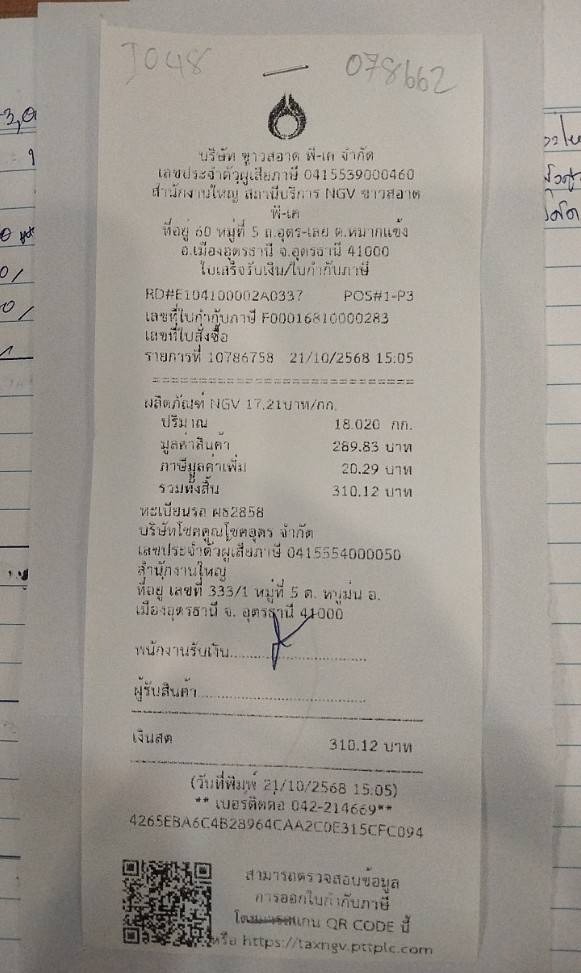 J048 — 078662
บริษัท ขาวสอาด พี-เค จำกัด
เลขประจำตัวผู้เสียภาษี 0415539000460
สำนักงานใหญ่ สถานีบริการ NGV ขาวสอาด
พี-เค
ที่อยู่ 60 หมู่ที่ 5 ถ.อุดร-เลย ต.หมากแข้ง
อ.เมืองอุดรธานี จ.อุดรธานี 41000
ใบเสร็จรับเงิน/ใบกำกับภาษี
RD#E104100002A0337 POS#1-P3
เลขที่ใบกำกับภาษี F00016810000283
เลขที่ใบสั่งซื้อ
รายการที่ 10786758 21/10/2568 15:05
ผลิตภัณฑ์ NGV 17.21บาท/กก.
ปริมาณ 18.020 กก.
มูลค่าสินค้า 289.83 บาท
ภาษีมูลค่าเพิ่ม 20.29 บาท
รวมทั้งสิ้น 310.12 บาท
ทะเบียนรถ ผธ2858
บริษัทโชคคูณโชคอุดร จำกัด
เลขประจำตัวผู้เสียภาษี 0415554000050
สำนักงานใหญ่
ที่อยู่ เลขที่ 333/1 หมู่ที่ 5 ต. หมูม่น อ.
เมืองอุดรธานี จ. อุดรธานี 41000
พนักงานรับเงิน
ผู้รับสินค้า
เงินสด 310.12 บาท
(วันที่พิมพ์ 21/10/2568 15:05)
** เบอร์ติดต่อ 042-214669**
4265EBA6C4B28964CAA2C0E315CFC094
สามารถตรวจสอบข้อมูล
การออกใบกำกับภาษี
QR CODE นี้
หรือ https://taxngv.pttplc.com